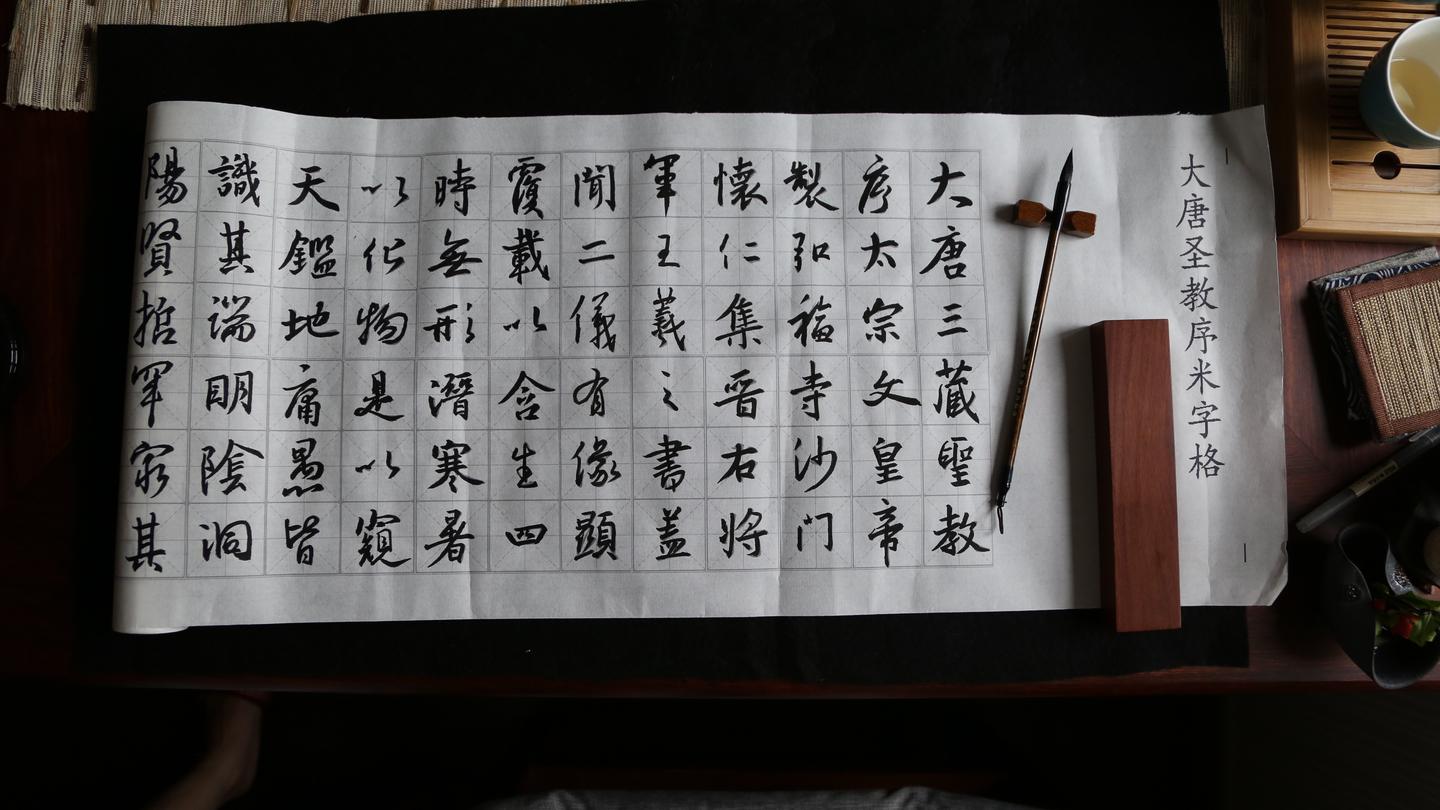 大唐圣教序米字格
大唐三藏聖教
序太宗文皇帝
製弘福寺沙门
懷仁集晋右将
軍王羲之書蓋
聞二儀有像顯
覆載以含生四
時無形潛寒暑
以化物是以窺
天鑑地庸愚皆
識其端明陰洞
陽賢哲罕窮其